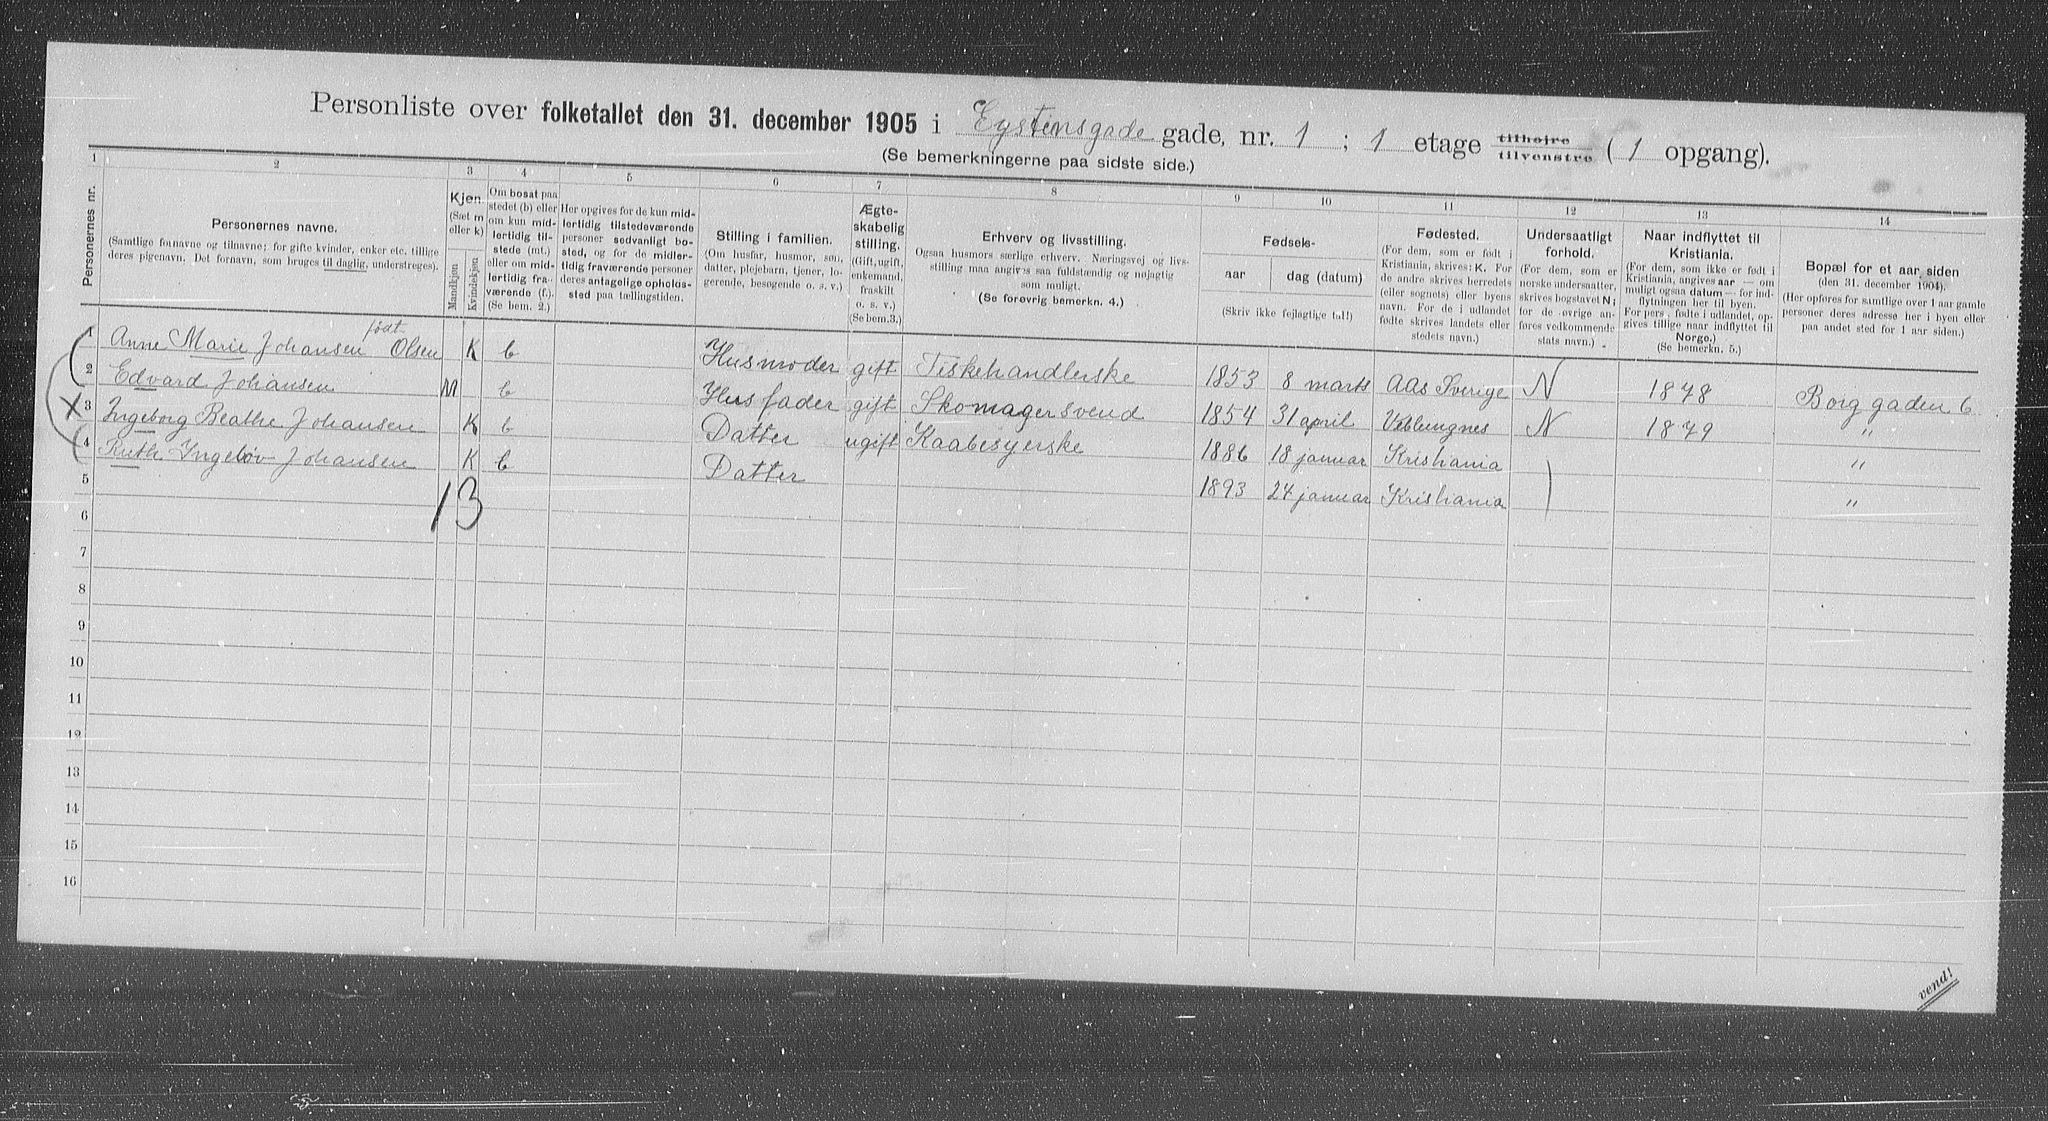 Personliste over folketallet den 31. december 1905 i Eystensgade gade, nr. 1 ; 1 etage tilhøjre tilvenstre ( 1 opgang).
(Se bemerkningerne paa sidste side.)
1 2 3 4 5 6 7 8 9 10 11 12 13 14
Personernes nr.
Personernes navne.
(Samtlige fornavne og tilnavne; for gifte kvinder, enker etc. tillige
deres pigenavn. Det fornavn, som bruges til daglig, understreges).
Kjøn
(Sæt m
eller k)
Mandkjøn
Kvindekjøn
Om bosat paa
stedet (b) eller
om kun mid-
lertidig til-
stede (mt.)
eller om mid-
lertidig fra-
værende (f.).
(Se bem. 2.)
Her opgives for de kun mid-
lertidig tilstedeværende
personer sedvanligt bo-
sted, og for de midler-
tidig fraværende personer
deres antagelige opholds-
sted paa tællingstiden.
Stilling i familien.
(Om husfar, husmor, søn,
datter, plejebarn, tjener, lo-
gerende, besøgende o. s. v.)
Ægte-
skabelig
stilling.
(Gift, ugift,
enkemand,
fraskilt
o. s. v.)
(Se bem.3.)
Erhverv og livsstilling.
Ogsaa husmors særlige erhverv. Næringsvej og livs-
stilling maa angives saa fuldstændig og nøjagtig
som muligt.
(Se forøvrig bemerkn. 4.)
Fødsels-
aar
dag (datum)
(Skriv ikke fejlagtige tal!)
Fødested.
(For dem, som er født i
Kristiania, skrives: K. For
de andre skrives herredets
(eller sognets) eller byens
navn. For de i udlandet
fødte skrives landets eller
stedets navn.)
Undersaatligt
forhold.
(For dem, som er
norske undersaatter,
skrives bogstavet N;
for de øvrige an-
føres vedkommende
stats navn.)
Naar indflyttet til
Kristiania.
(For dem, som ikke er født i
Kristiania, angives aar — om
muligt ogsaa datum — for ind-
flytningen her til byen.
For pers. fødte i udlandet, op-
gives tillige naar indflyttet til
Norge.)
(Se bemerkn. 5.)
Bopæl for et aar siden
(den 31. december 1904).
(Her opføres for samtlige over 1 aar gamle
personer deres adresse her i byen eller
paa andet sted for 1 aar siden.)
1 Anne Marie Johansen født Olsen K b Husmoder gift Fiskehandlerske 1853 8 marts Aas Sverige N 1878 Borggaden 6
2 Edvard Johansen M b Husfader gift Skomagersvend 1854 31 april Veblungnes N 1879 "
3 Ingeborg Beathe Johansen K b Datter ugift Kaabesyerske 1886 18 januar Kristiania "
4 Ruth Ingebøv Johansen K b Datter 1893 24 januar Kristiania "
5
1 3
6
7
8
9
10
11
12
13
14
15
16
vend!